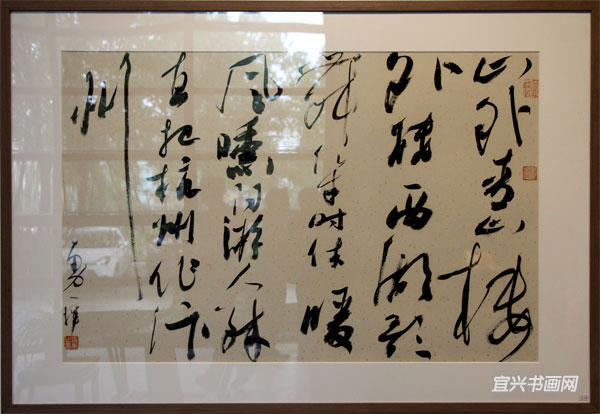 山外青山楼
外楼西湖歌
舞幾时休暖
风曛得游人醉
直把杭州作汴
州
宜兴书画网